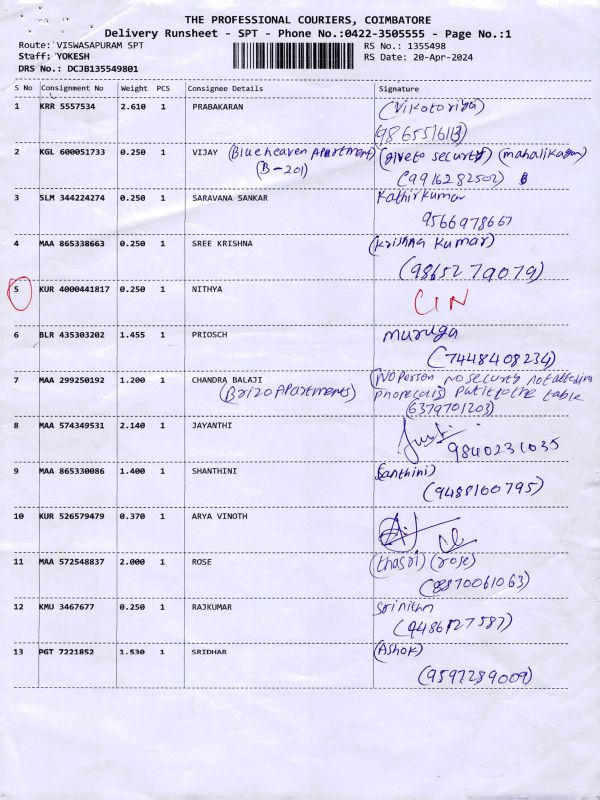 THE PROFESSIONAL COURIERS, COIMBATORE
Delivery Runsheet - SPT - Phone No.:0422-3505555 - Page No.:1
Route: VISWASAPURAM SPT
RS No.: 1355498
Staff: YOKESH
RS Date: 20-Apr-2024
DRS No.: DCJB135549801
S No Consignment No Weight PCS Consignee Details Signature
1 KRR 5557534 2.610 1 PRABAKARAN
2 KGL 600051733 0.250 1 VIJAY (Blueheaven Apartment) (giveto security) (mahalikagam)
(B-201) (9916282502)
3 SLM 344224274 0.250 1 SARAVANA SANKAR Kathirkumar
9566978667
4 MAA 865338663 0.250 1 SREE KRISHNA (Krishna Kumar)
(9865279079)
5 KUR 4000441817 0.250 1 NITHYA
6 BLR 435303202 1.455 1 PRIOSCH muruga
(7448408234)
7 MAA 299250192 1.200 1 CHANDRA BALAJI (NO Person no security not attending
(Brizo Apartments) phone calls) put it to the table
(6379701203)
8 MAA 574349531 2.140 1 JAYANTHI
9840231035
9 MAA 865330086 1.400 1 SHANTHINI (Santhini)
(9488100795)
10 KUR 526579479 0.370 1 ARYA VINOTH
11 MAA 572548837 2.000 1 ROSE (thasri) (rose)
(8870061063)
12 KMU 3467677 0.250 1 RAJKUMAR Srinithn
(9486127587)
13 PGT 7221852 1.530 1 SRIDHAR (Ashok)
(9597289009)